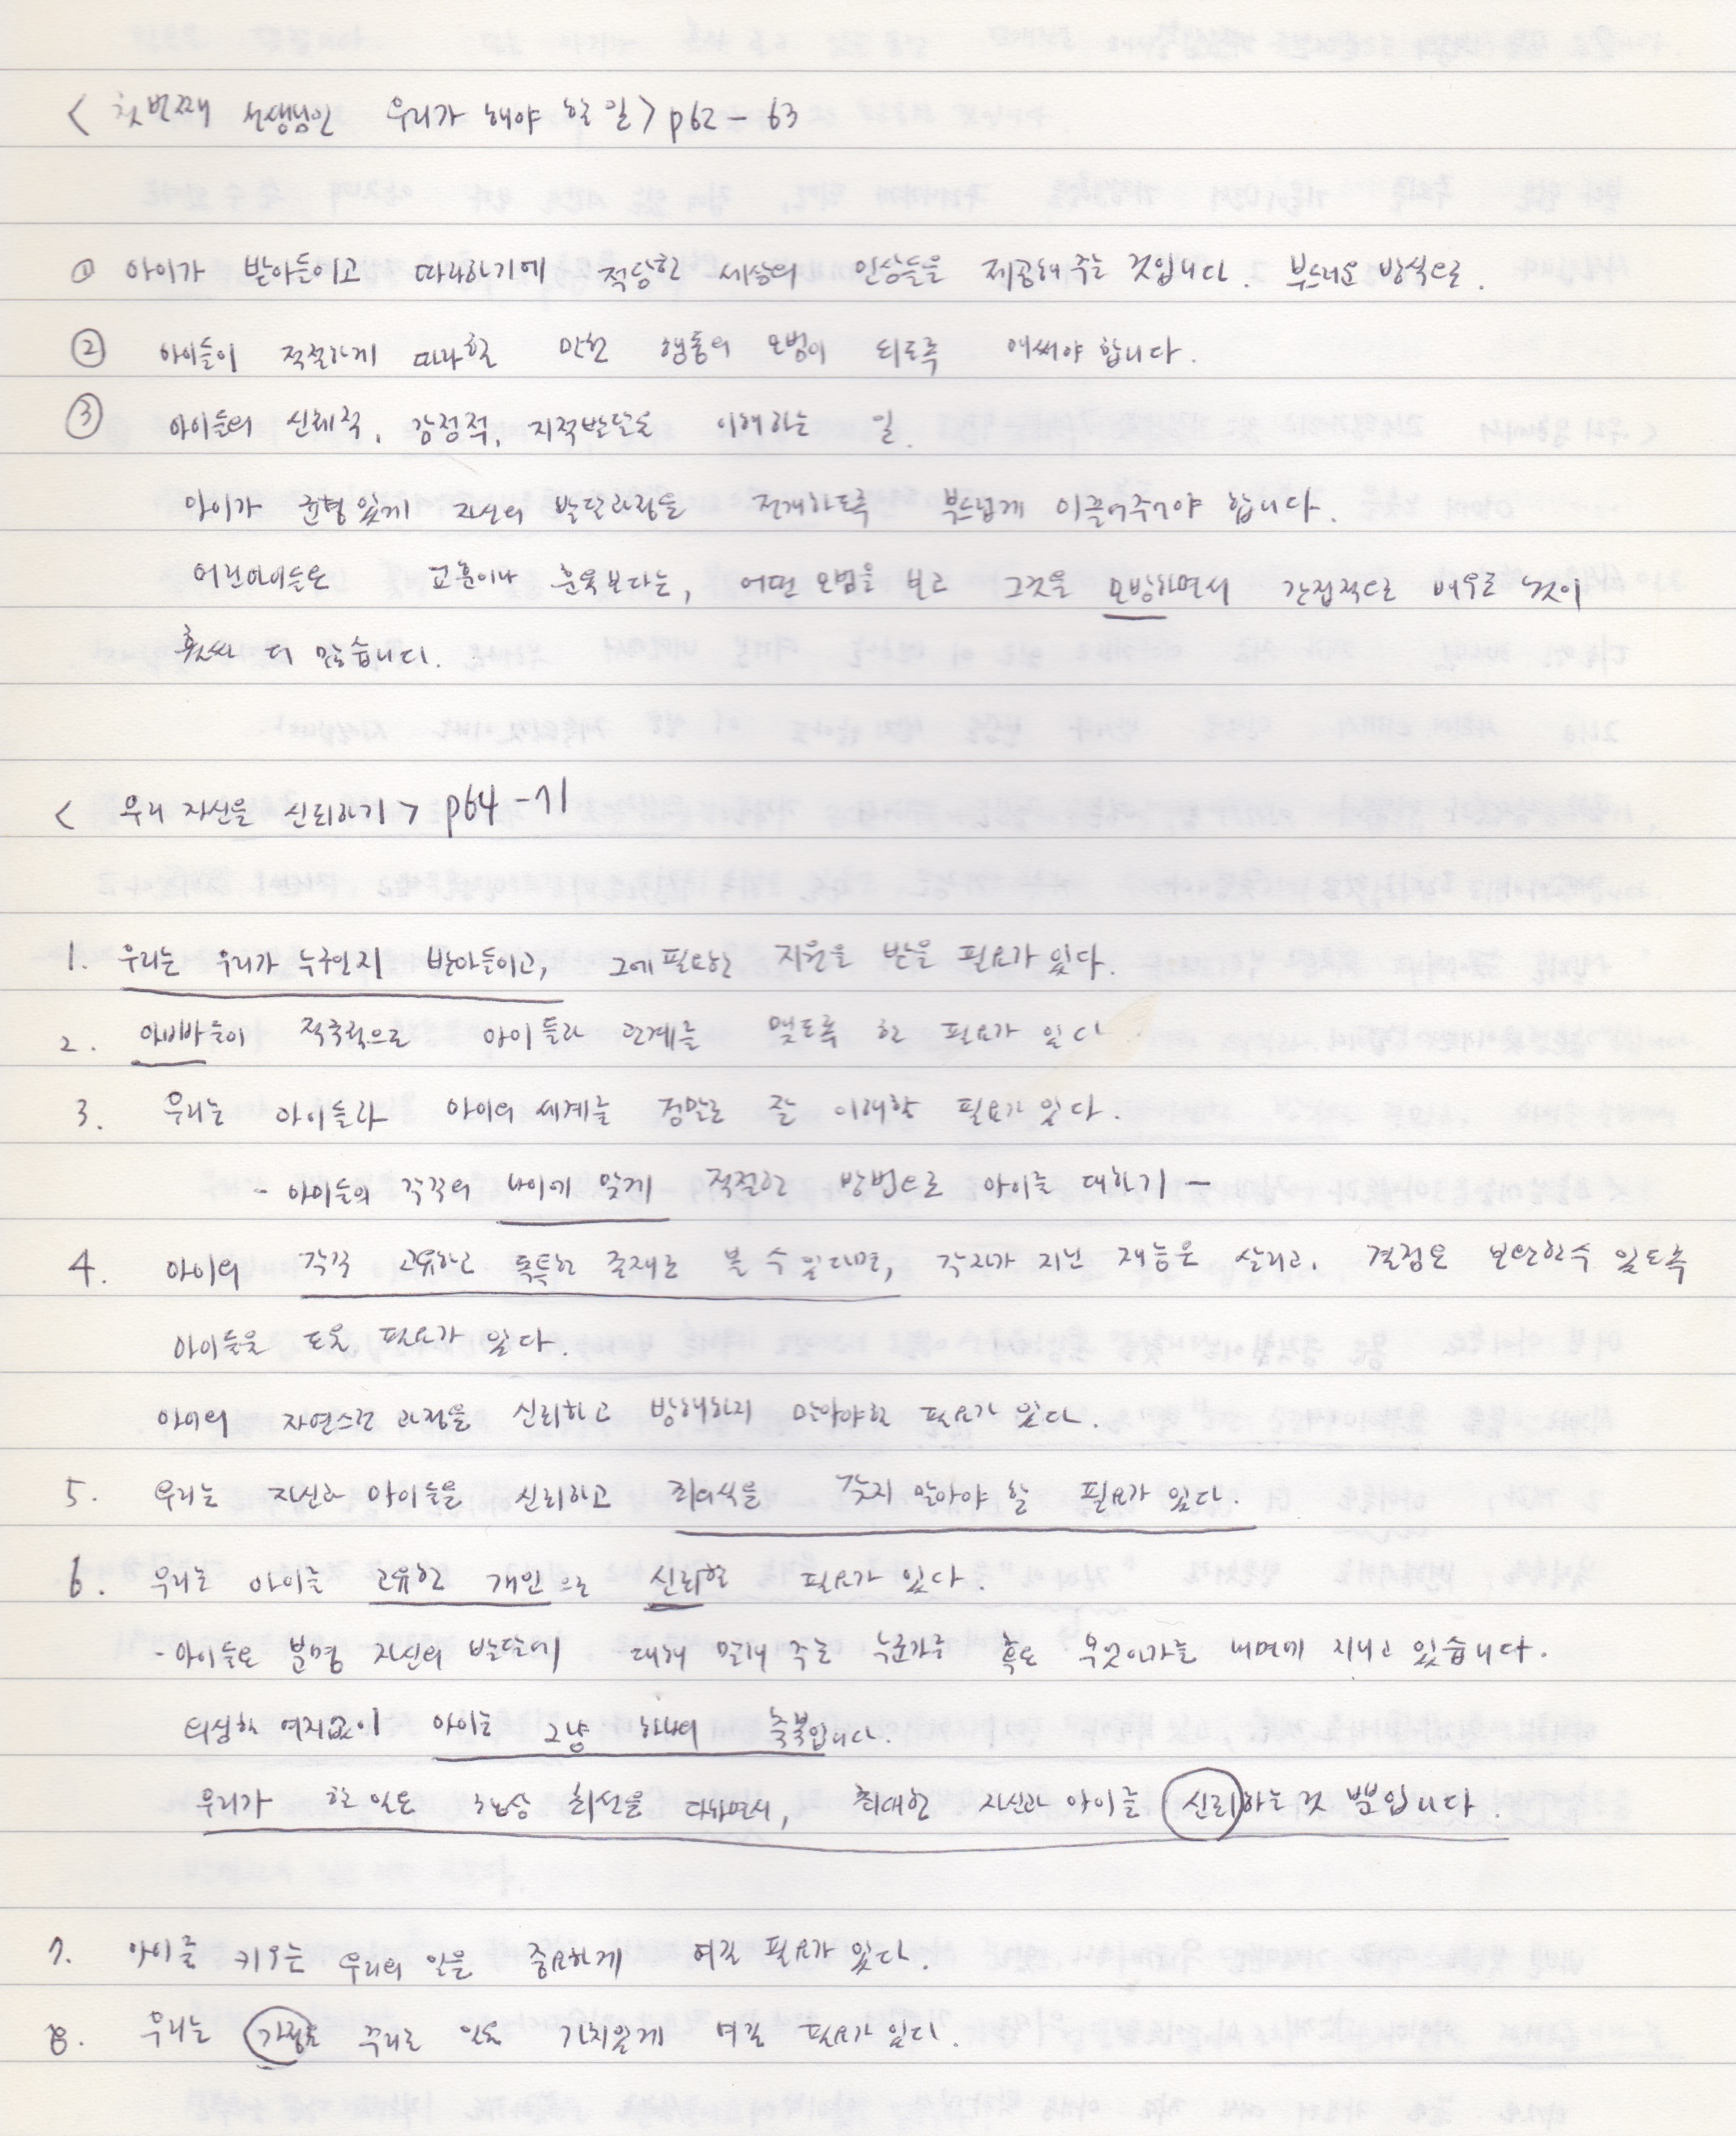 < 첫번째 선생님인 우리가 해야 할 일 > p62 - 63
① 아이가 받아들이고 따라하기에 적당한 세상의 인상들을 제공해주는 것입니다. 부드러운 방식으로.
② 아이들이 적절하게 따라할 만한 행동의 모범이 되도록 애써야 합니다.
③ 아이들의 신체적, 감정적, 지적발달을 이해하는 일.
아이가 균형있게 자신의 발달과정을 전개하도록 부드럽게 이끌어주어야 합니다.
어린아이들은 교훈이나 훈육보다는, 어떤 모범을 보고 그것을 모방하면서 간접적으로 배우는 것이
훨씬 더 많습니다.
< 우리 자신을 신뢰하기 > p64 - 71
1. 우리는 우리가 누구인지 받아들이고, 그에 필요한 지원을 받을 필요가 있다.
2. 아빠들이 적극적으로 아이들과 관계를 맺도록 할 필요가 있다
3. 우리는 아이들과 아이의 세계를 정말로 잘 이해할 필요가 있다.
- 아이들의 각각의 나이에 맞게 적절한 방법으로 아이를 대하기 -
4. 아이의 각각 고유하고 독특한 존재로 볼 수 있다면, 각자가 지닌 재능은 살리고, 결점은 보완할수 있도록
아이들을 도울 필요가 있다.
아이의 자연스런 과정을 신뢰하고 방해하지 말아야할 필요가 있다.
5. 우리는 자신과 아이들을 신뢰하고 죄의식을 갖지 말아야 할 필요가 있다.
6. 우리는 아이를 고유한 개인으로 신뢰할 필요가 있다.
- 아이들은 분명 자신의 발달에 대해 말해 주는 누군가를 혹은 무엇인가를 내면에 지니고 있습니다.
의심할 여지없이 아이는 그냥 하나의 축복입니다.
우리가 할 일은 항상 최선을 다하면서, 최대한 자신과 아이를 신뢰하는 것 뿐입니다.
7. 아이를 키우는 우리의 일을 중요하게 여길 필요가 있다.
8. 우리는 가정을 꾸리는 일을 가치있게 여길 필요가 있다.